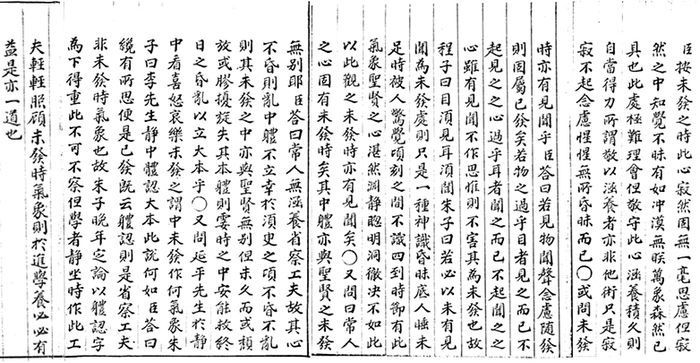 臣按未發之時此心寂然固無一毫思慮但寂
然之中知覺不昧有如冲漠無眹萬象森然已
具也此處極難理會但敬守此心涵養積久則
自當得力所謂敬以涵養者亦非他術只是寂
寂不起念慮惺惺無所昏昧而已○或問未發
時亦有見聞乎臣答曰若見物聞聲念慮隨發
則固屬已發矣若物之過乎目者見之而已不
起見之之心過乎耳者聞之而已不起聞之之
心雖有見聞不作思惟則不害其為未發也故
程子曰目須見耳須聞朱子曰若必以未有見
聞為未發處則只是一種神識昏昧底人睡未
足時被人驚覺頃刻之間不識四到時節有此
氣象聖賢之心湛然淵靜聰明洞徹决不如此
以此觀之未發時亦有見聞矣○又問曰常人
之心固有未發時矣其中體亦與聖賢之未發
無別耶臣答曰常人無涵養省察工夫故其心
不昏則亂中體不立幸於須臾之頃不昏不亂
則其未發之中亦與聖賢無別但未久而或頹
放或膠擾旋失其本體則霎時之中安能救終
日之昏亂以立大本乎○又問延平先生於靜
中看喜怒哀樂未發之謂中未發作何氣象朱
子曰李先生靜中體認大本此說何如臣答曰
纔有所思便是已發既云體認則是省察工夫
非未發時氣象也故朱子晚年定論以體認字
為下得重此不可不察但學者靜坐時作此工
夫輕輕照顧未發時氣象則於進學養心必有
益是亦一道也